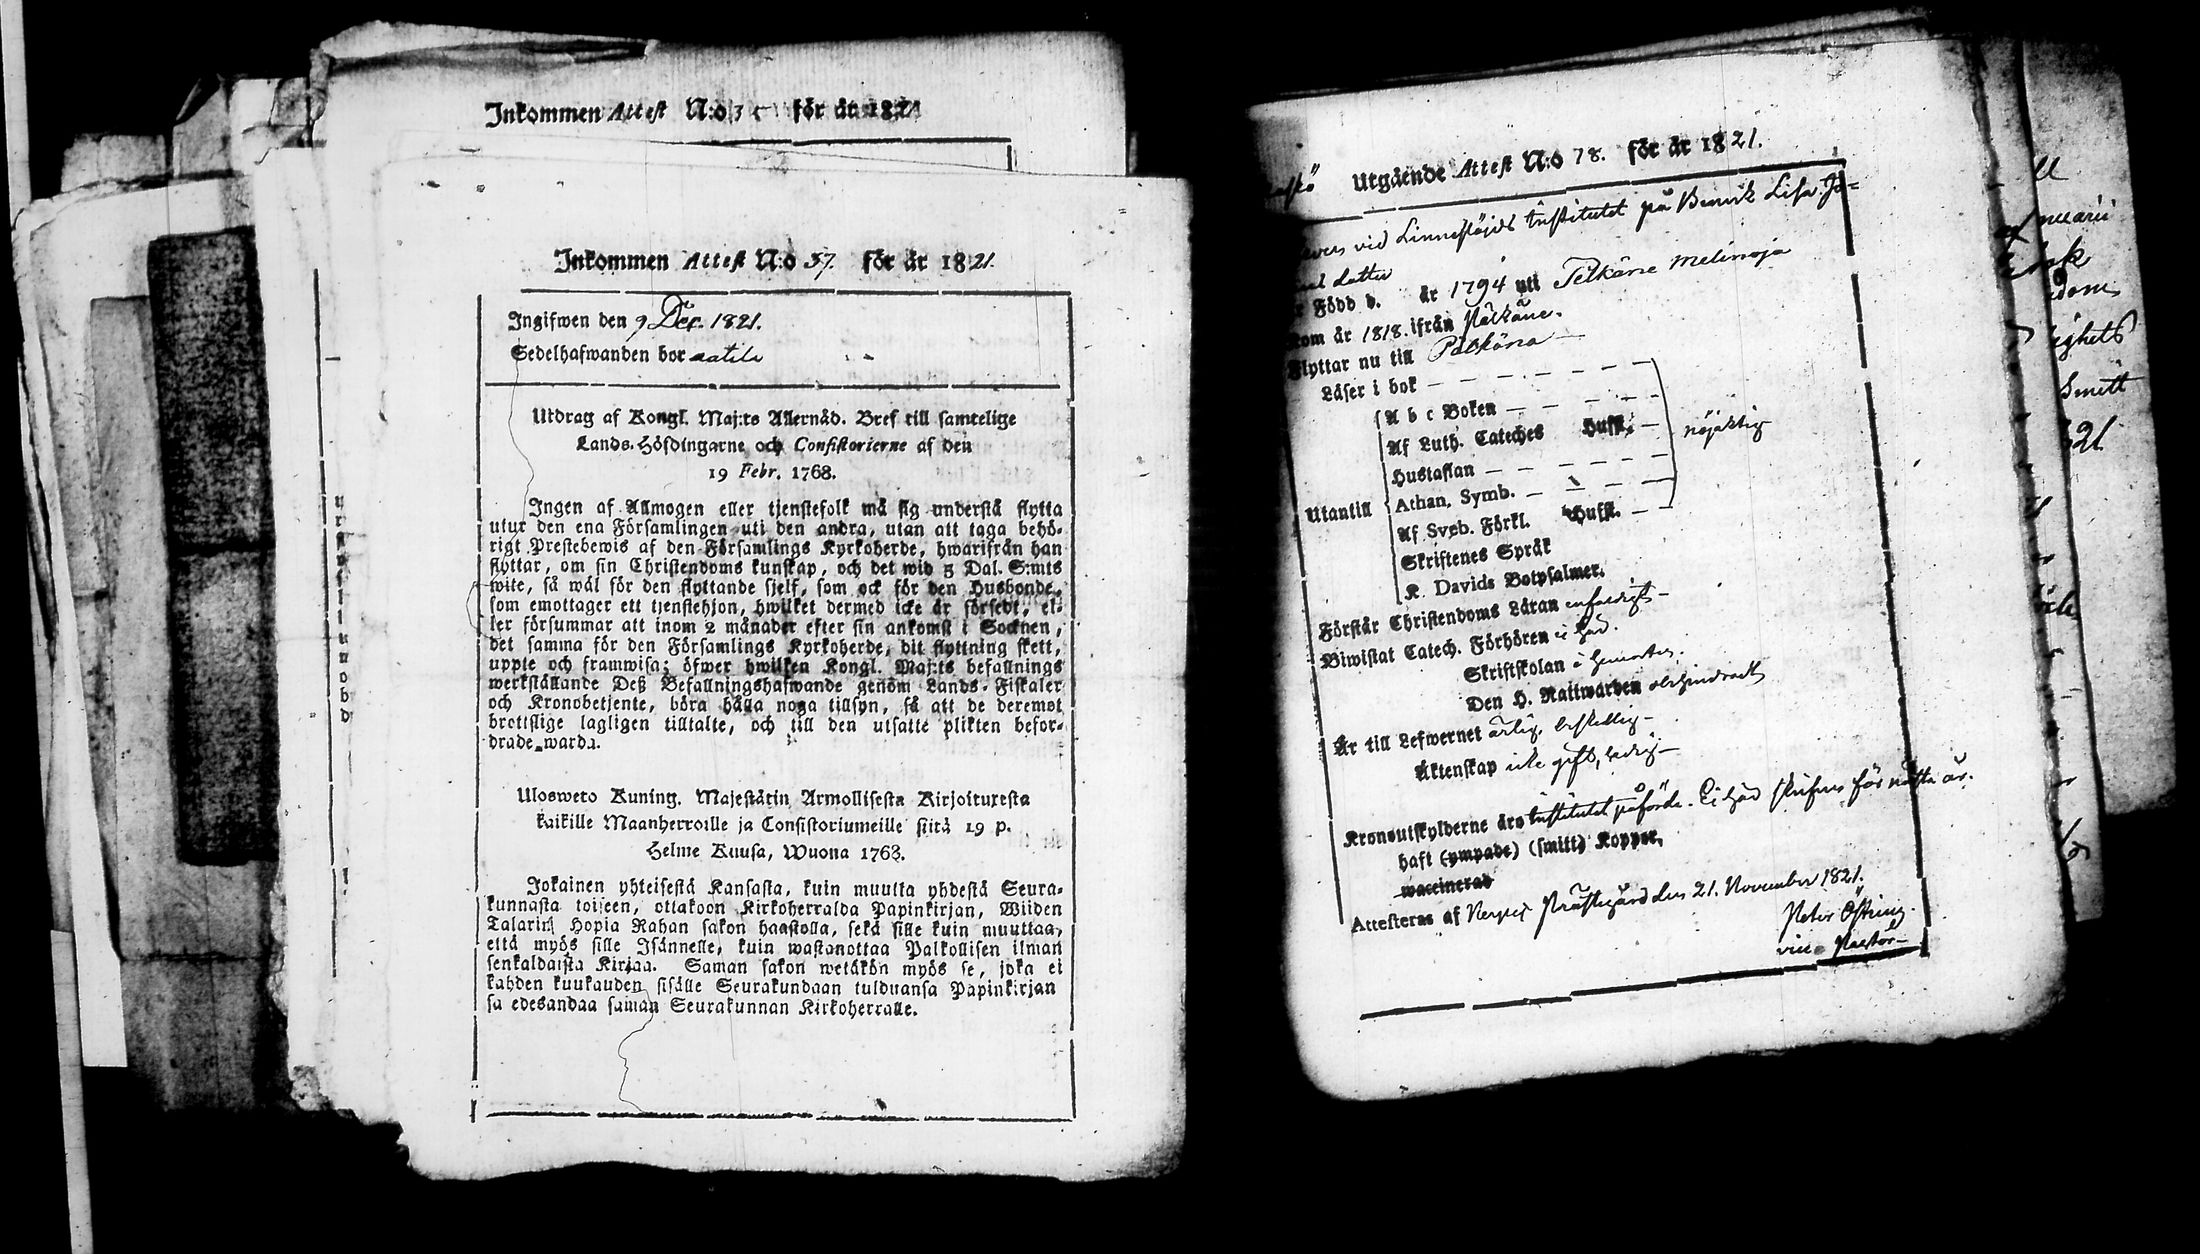 Inkommen Attest N:o 3 för år 1821
Inkommen Attest N:o 37. för år 1821.
Ingifwen den 9 Dec. 1821.
Sedelhafwanden bor
Utdrag af Kongl. Maj:ts Allernåd. Bref till samtelige
Lands-Höfdingarne och Consistorierne af den
19 Febr. 1768.
Ingen af Allmogen eller tjenstefolk må sig understå flytta
utur den ena Församlingen uti den andra, utan att taga behö-
rigt Prestebewis af den Församlings Kyrkoherde, hwarifrån han
flyttar, om sin Christendoms kunskap, och det wid 5 Dal. S:mts
wite, så wäl för den flyttande sjelf, som ock för den Husbonde,
som emottager ett tjenstehjon, hwilket dermed icke är försedt, el-
ler försummar att inom 2 månader efter sin ankomst i Socknen,
det samma för den Församlings Kyrkoherde, dit flyttning skett,
uppte och framwisa; öfwer hwilken Kongl. Maj:ts befallnings
werkställande Deß Befallningshafwande genom Lands-Fiskaler
och Kronobetjente, böra hålla noga tillsyn, så att de deremot
brottslige lagligen tilltalte, och till den utsatte plikten befor-
drade warda.
Ulosweto Kuning. Majestätin Armollisesta Kirjoituxesta
kaikille Maanherroille ja Consistoriumeille siitä 19 p.
Helme Kuusa, Wuona 1768.
Jokainen yhteisestä Kansasta, kuin muutta yhdestä Seura-
kunnasta toiseen, ottakoon Kirkoherralda Papinkirjan, Wiiden
Talarin Hopia Rahan sakon haastolla, sekä sille kuin muuttaa,
että myös sille Isännelle, kuin wastanottaa Palkollisen ilman
senkaldaista Kirjaa. Saman sakon wetäkön myös se, joka ei
kahden kuukauden sisälle Seurakundaan tulduansa Papinkirjan
sa edesandaa saman Seurakunnan Kirkoherralle.
Utgående Attest N:o 78. för år 1821.
vid Linneslöjds Institutet på Lisa
Född d. år 1794 uti Pelkäne Melinoja
kom år 1818. ifrån Pälkäne.
Flyttar nu till Pälkäne
Läser i bok
Utantill
A b c Boken
Af Luth. Cateches Hufst.
Hustaflan
Athan. Symb.
Af Sveb. Förkl. Hufst.
nöjaktig
Skriftenes Språk
K. Davids Botpsalmer.
Förstår Christendoms Läran enfaldigt
Biwistat Catech. Förhören ej här.
Skriftskolan
Den H. Nattwarden obehindradt
Är till Lefwernet ärlig, beskedlig
Äktenskap icke gift, ledig
Kronoutskylderne äro Institutet påförda. Ej här skrifven för nästa år.
haft (ympade) (smitt) Koppor,
waccinerad
Attesteras af Prästegård den 21. November 1821.
Peter Östring.
vice Pastor